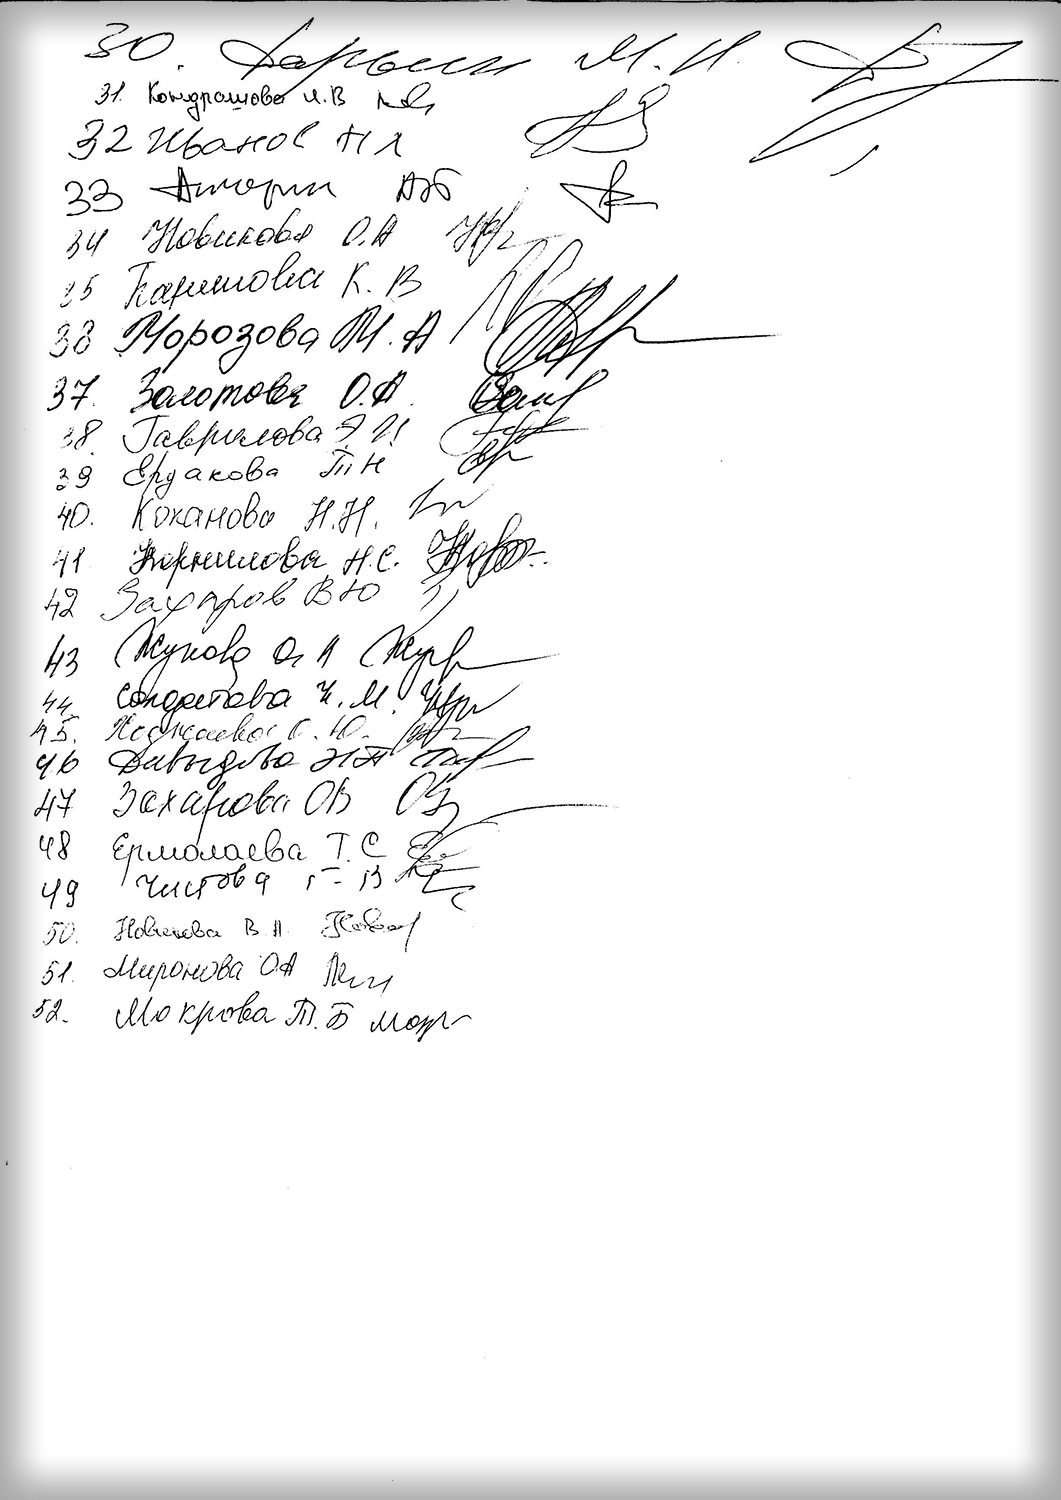 30. Дарьин М.И.
31. Кондрашова И.В
32 Иванов Н Л
33 А Б
34 Новикова О.А
35 Каримова К. В
36 Морозова М. А
37. Золотова О.А.
38. Гаврилова Э.И
39 Ердакова Т Н
40. Коханова Н.Н.
41 Корнилова Н.С.
42 Захаров В Ю
43 Жукова О А
44. Солдатова Н. М.
45. С. Ю.
46 Давыдова Н П
47 Захарова ОВ
48 Ермолаева Т. С
49 Чистова Г В
50. Новикова В. А.
51. Миронова ОА
52. Мокрова Т. Б